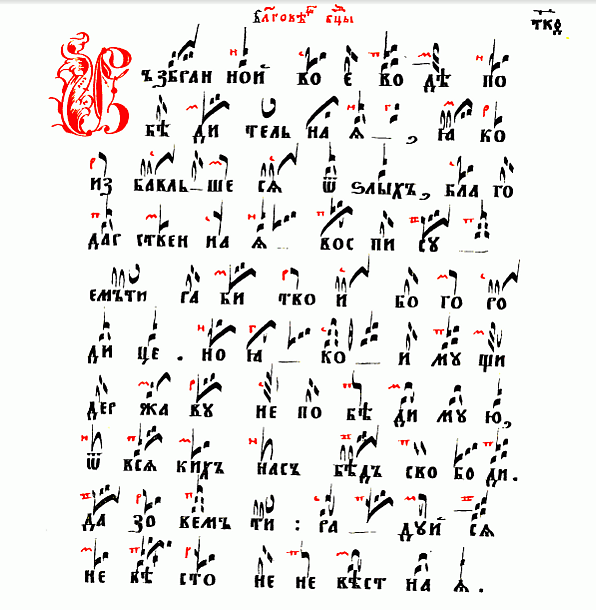 Въꙁбран ной во є во дѣ по
бѣ ди тель на ѧ , ꙗ ко
из бавль ше сѧ ѿ ѕлыхъ, бла го
дар ствен на ѧ вос пи су
емъ ти ра би тво и бо го ро
ди це . но ꙗ ко и му щи
дер жа ву не по бѣ ди му ю,
ѿ всѧ кихъ насъ бѣдъ сво бо ди.
да зо вемъ ти : ра дуй сѧ
не вѣ сто не не вѣст на ѧ .